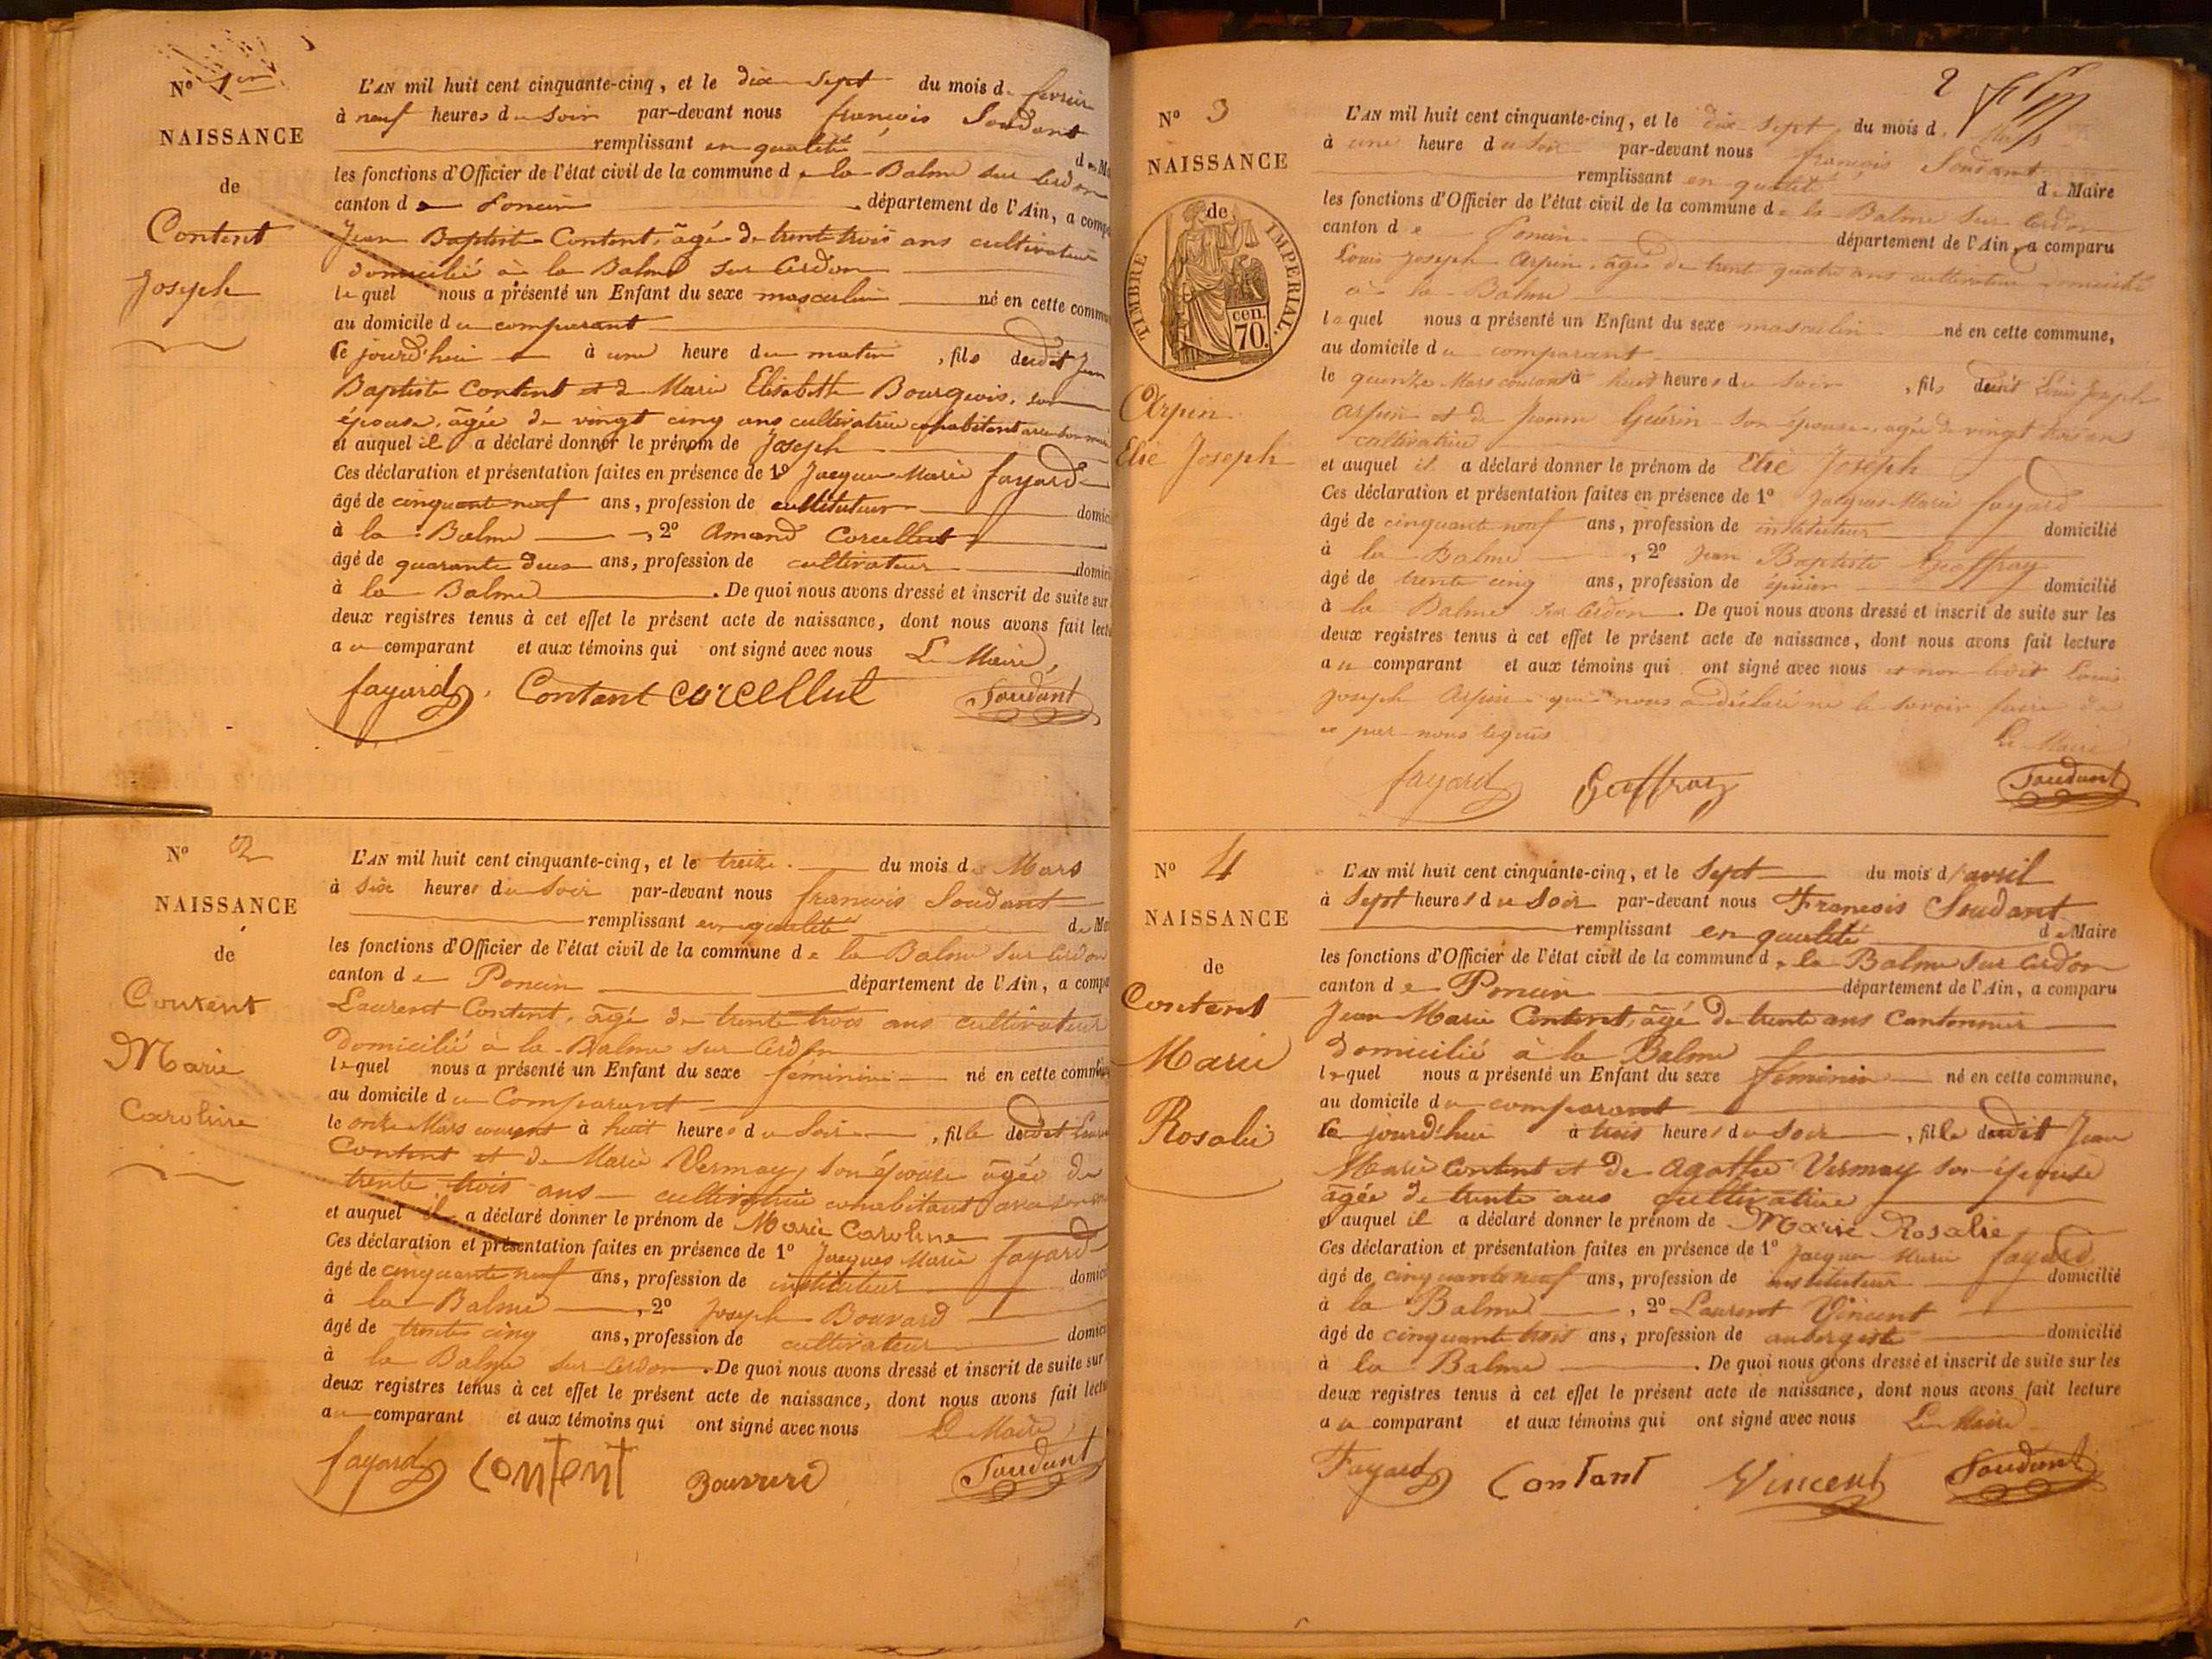 No 1er
NAISSANCE
de
Content
Joseph
L'AN mil huit cent cinquante-cinq, et le dix Sept du mois de fevrier
à neuf heures du Soir par-devant nous françois Soudant
remplissant en qualité de Ma
les fonctions d'Officier de l'état civil de la commune de la Balme sur Cerdon
canton de Poncin département de l'Ain, a comp
Jean Baptiste Content, âgé de trente trois ans cultivateur
domicilié à la Balme sur Cerdon
lequel nous a présenté un Enfant du sexe masculin né en cette commu
au domicile du comparant
ce jourd'hui à une heure du matin, fils dudit Jean
Baptiste Content et de Marie Elisabeth Bourgeois, son
épouse, âgée de vingt cinq ans cultivatrice cohabitant avec son mari
et auquel il a déclaré donner le prénom de Joseph
Ces déclaration et présentation faites en présence de 1o Jacques Marie fayard
âgé de cinquante neuf ans, profession de domici
à la Balme, 2o Amand Corcellut
âgé de quarante deux ans, profession de cultivateur domici
à la Balme. De quoi nous avons dressé et inscrit de suite sur
deux registres tenus à cet effet le présent acte de naissance, dont nous avons fait lectu
au comparant et aux témoins qui ont signé avec nous Le Maire,
fayard Contant corcellut Soudant
No 2
NAISSANCE
de
Content
Marie
Caroline
L'AN mil huit cent cinquante-cinq, et le treize du mois de Mars
à Six heures du Soir par-devant nous françois Soudant
remplissant en qualité de Ma
les fonctions d'Officier de l'état civil de la commune de la Balme sur Cerdon
canton de Poncin département de l'Ain, a compa
Laurent Content, âgé de trente trois ans cultivateur
domicilié à la Balme sur Cerdon
lequel nous a présenté un Enfant du sexe feminin né en cette commu
au domicile du Comparant
le onze Mars courant à huit heures du Soir, fille dudit Laurent
Content et de Marie Vermay, son épouse âgée de
trente trois ans cultivatrice cohabitant avec son
et auquel il a déclaré donner le prénom de Marie Caroline
Ces déclaration et présentation faites en présence de 1o Jacques Marie fayard
âgé de cinquante neuf ans, profession de instituteur domici
à la Balme, 2o Joseph Bouvard
âgé de trente cinq ans, profession de cultivateur domici
à la Balme sur Cerdon. De quoi nous avons dressé et inscrit de suite sur
deux registres tenus à cet effet le présent acte de naissance, dont nous avons fait lectu
au comparant et aux témoins qui ont signé avec nous Le Maire,
fayard content Soudant
2
No 3
NAISSANCE
de
TIMBRE IMPERIAL.
cen.
70.
Arpin
Elie Joseph
L'AN mil huit cent cinquante-cinq, et le dix Sept du mois de Mars
à une heure du Soir par-devant nous françois Soudant
remplissant en qualité de Maire
les fonctions d'Officier de l'état civil de la commune de la Balme sur Cerdon
canton de Poncin département de l'Ain, a comparu
Louis Joseph Arpin, âgé de trente quatre ans cultivateur domicilié
à la Balme
lequel nous a présenté un Enfant du sexe masculin né en cette commune,
au domicile du comparant
le quinze Mars courant à huit heures du Soir, fils dudit Louis Joseph
Arpin et de Jeanne Guérin son épouse, agée de vingt trois ans
cultivatrice
et auquel il a déclaré donner le prénom de Elie Joseph
Ces déclaration et présentation faites en présence de 1o Jacques Marie fayard
âgé de cinquante neuf ans, profession de instituteur domicilié
à la Balme, 2o Jean Baptiste Geoffray
âgé de trente cinq ans, profession de épicier domicilié
à la Balme sur Cerdon. De quoi nous avons dressé et inscrit de suite sur les
deux registres tenus à cet effet le présent acte de naissance, dont nous avons fait lecture
au comparant et aux témoins qui ont signé avec nous et non ledit Louis
Joseph Arpin qui nous a déclaré ne le savoir faire de
ce par nous requis
Le Maire
fayard Geoffray Soudant
No 4
NAISSANCE
de
Content
Marie
Rosalie
L'AN mil huit cent cinquante-cinq, et le Sept du mois d'avril
à Sept heures du Soir par-devant nous François Soudant
remplissant en qualité de Maire
les fonctions d'Officier de l'état civil de la commune de la Balme sur Cerdon
canton de Poncin département de l'Ain, a comparu
Jean Marie Content, âgé de trente ans Cantonnier
domicilié à la Balme
lequel nous a présenté un Enfant du sexe féminin né en cette commune,
au domicile du comparant
ce jourd'hui à trois heures du Soir, fille dudit Jean
Marie Content et de Agathe Vermay son épouse
âgée de trente ans cultivatrice
et auquel il a déclaré donner le prénom de Marie Rosalie
Ces déclaration et présentation faites en présence de 1o Jacques Marie fayard
âgé de cinquante neuf ans, profession de instituteur domicilié
à la Balme, 2o Laurent Vincent
âgé de cinquante trois ans, profession de aubergiste domicilié
à la Balme. De quoi nous avons dressé et inscrit de suite sur les
deux registres tenus à cet effet le présent acte de naissance, dont nous avons fait lecture
au comparant et aux témoins qui ont signé avec nous Le Maire
Fayard Contant Vincent Soudant